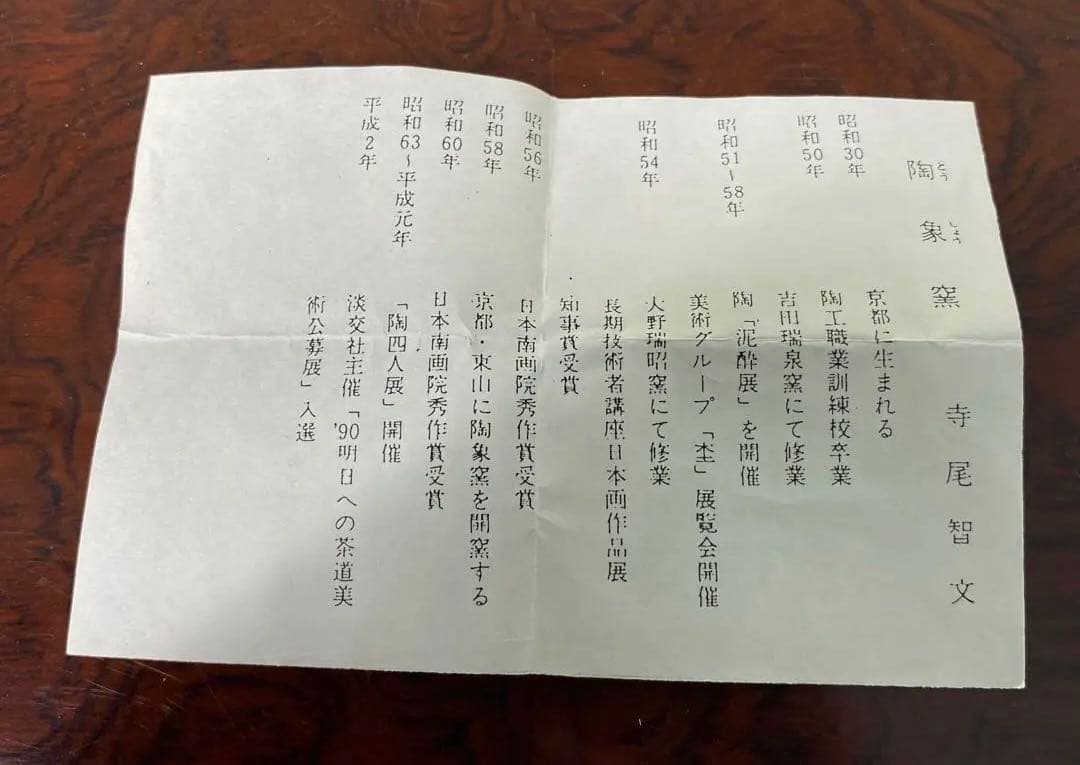 陶象窯 寺尾智文
とう しょう
昭和30年 京都に生まれる
昭和50年 陶工職業訓練校卒業
吉田瑞泉窯にて修業
昭和51~58年 陶「泥酔展」を開催
美術グループ「杢」展覧会開催
昭和54年 大野瑞昭窯にて修業
長期技術者講座日本画作品展
知事賞受賞
昭和56年 日本南画院秀作賞受賞
昭和58年 京都・東山に陶象窯を開窯する
昭和60年 日本南画院秀作賞受賞
昭和63~平成元年 「陶四人展」開催
平成2年 淡交社主催「'90明日への茶道美
術公募展」入選